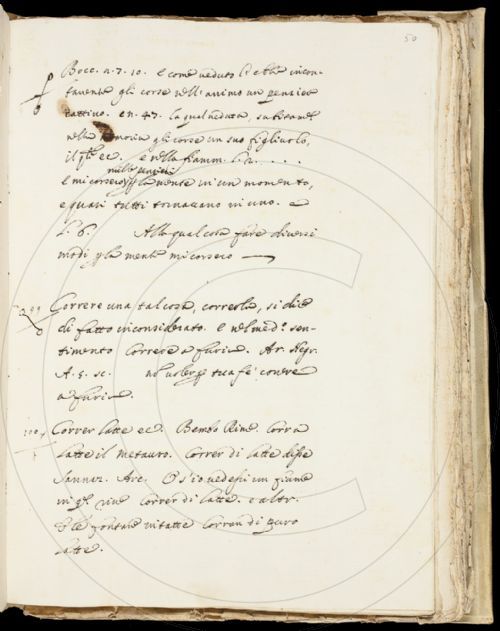 50
Bocc. n. 7. 10. e come veduto l'ebbe incon-
tanente gli corse nell'animo un pensier
cattivo. e n. 43. la qual veduta, subitam.te
nella memoria gli corse un suo figliuolo,
il q.le ec. e nella fiamm. l. 2. . . . .
mille pensieri
e mi corsero p la mente in un momento,
e quasi tutti tornavano in uno. e
l. 6. Alla qual cosa fare diversi
modi p la mente mi corsero
299 Correre una tal cosa, correrla, si dice
di fatto inconsiderato. e nel med.o sen-
timento Correre a furia. Ar. Negr.
A. 5. sc. tua fe' correre
a furia.
300 Correr latte ec. Bembo Rime. Corra
latte il Metauro. Correr di latte disse
Sannaz. Arc. O s'io vedessi un fiume
in q.te rive Correr di latte. e altr.
E le fontane intatte Corran di puro
latte.